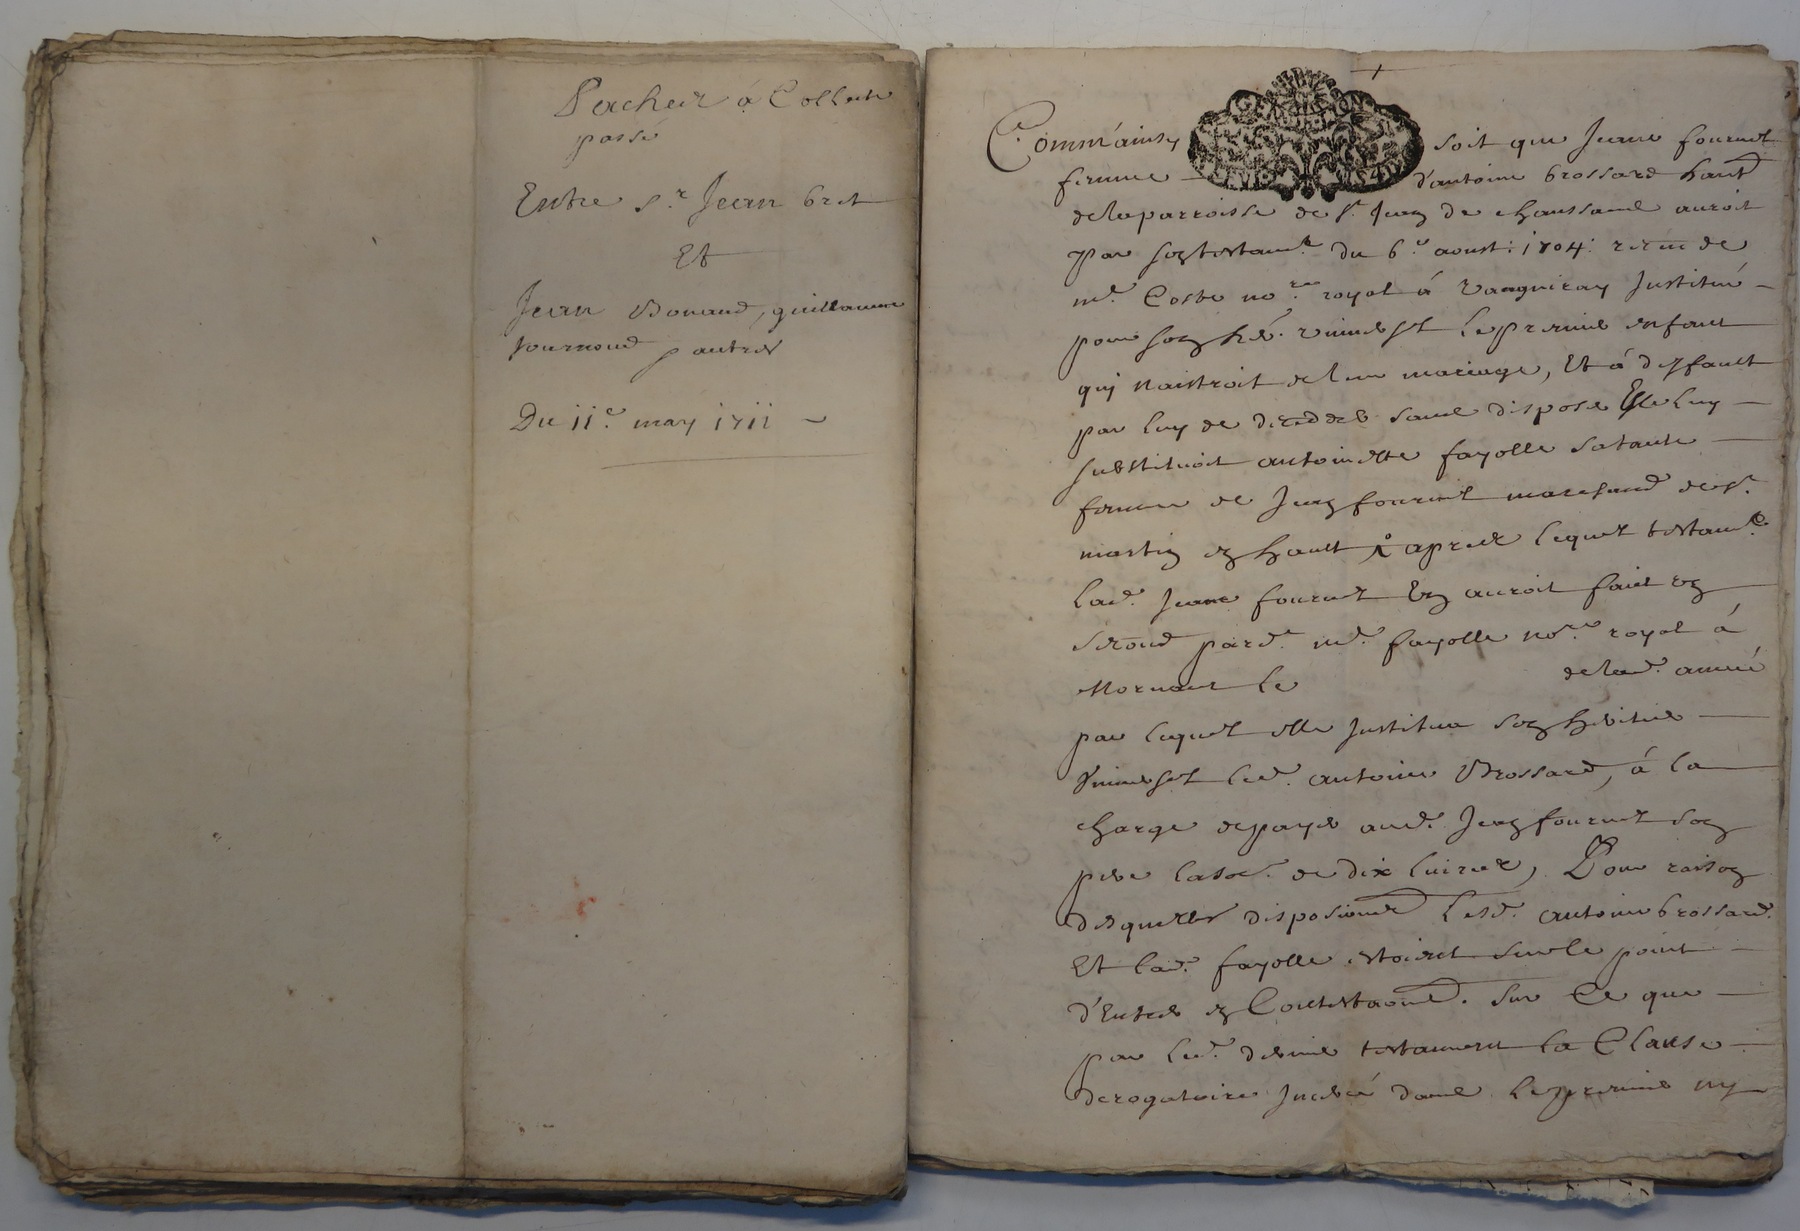 Pacher à Collecte
passé
Entre s.r Jean bret
Et
Jean Bonand, guillaume
fournond autres
Du 11.e may 1711
Comm'ainsy soit que Jeane fournel
femme d'antoine brossard habit
de la parroisse de s.t Jean de chaussand auroit
par son testam.t du 6.e aoust 1704. receu de
m.e Coste no.re royal à Vaugniray Institué
pour son her. univers.l le premier enfant
qui naistroit de leur mariage, Et à deffault
par luy de deceder sans dispose Elle luy
substituoit antoinette fayolle sa tante
femme de Jean fournel marchand de s.t
martin en hault & apres lequel testam.t
lad. Jeane fournel En auroit fait un
second pard. m.e fayolle no.re royal à
Mornant le de lad. année
par lequel elle Institue son heritier
univers.l led. antoine Brossard, à la
charge de payer aud. Jean fournel son
pere la so. de dix livres, Pour raison
desquelles dispositions lesd. antoine brossard
Et lad. fayolle estoient sur le point
d'Entrer en Contestaon. Sur Ce que
par led. dernier testament la Clause
derogatoire Inseré dans le premier ny